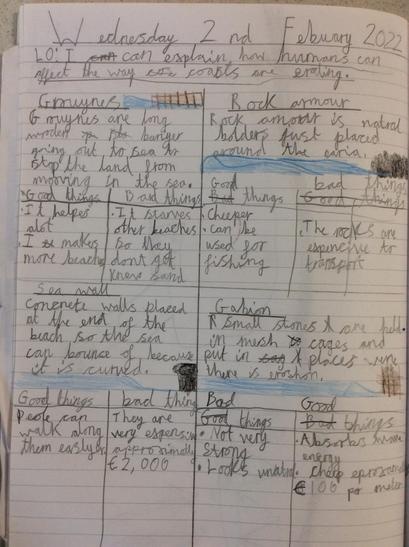 Wednesday 2nd Febuary 2022
LO: I can explain how humans can
affect the way coasts are eroding.
Groynes
Groynes are long
wooden banger
going out to sea to
stop the land from
mooving in the sea.
Good things
• It helps
alot
I makes
more beachs
Bad things
• It starves
other beaches
so they
dont get
new sand
Rock armour
Rock armour is natral
bolders just placed
around the earia.
Good things
• Cheeper
• can be
used for
fishing
bad things
• The rocks are
expencive to
transport
Sea wall
Concrete walls placed
at the end of the
beach so the sea
can bounce of beecause
it is curved.
Good things
People can
walk along
them easley
bad things
They are
very expensiv
approximatly
€2,000
Gabion
Small stones are held
in mesh cages and
put in places were
there is eroshon.
Bad things
• Not very
strong
• Looks unatral
Good things
• Absorbs
energy
• cheep
€100 per meter